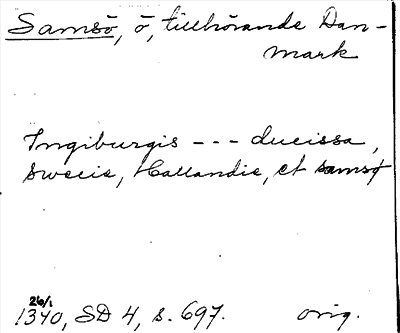 Samsö, ö, tillhörande Dan-
mark
Ingiburgis --- ducissa,
swecie, Hallandie, et samsø
26/1
1340, SD 4, s. 697. orig.